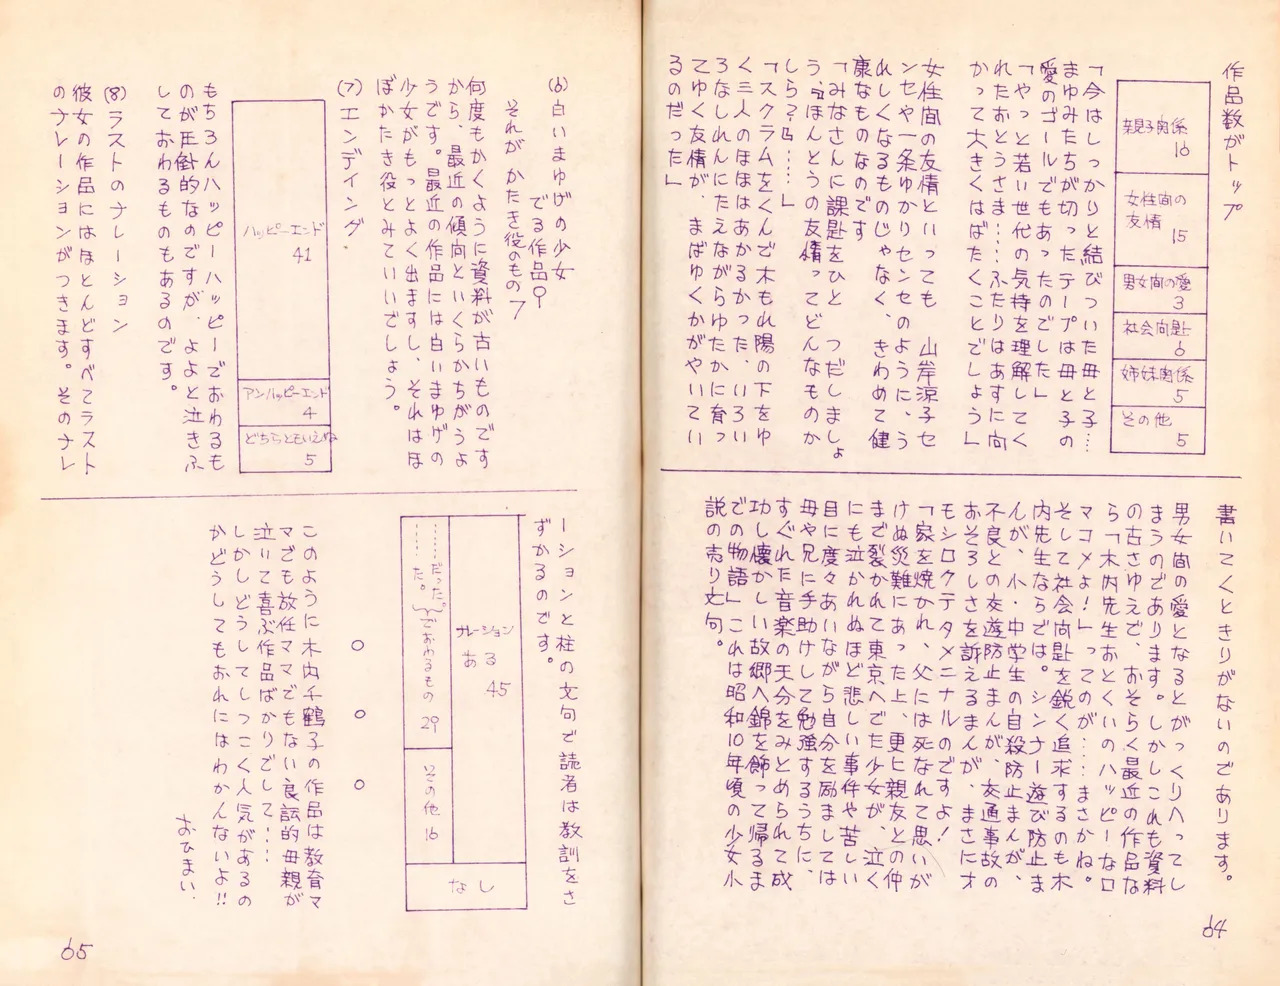 作品数がトップ
親子関係
16
女性間の
友情
15
男女間の愛
3
社会問題
6
姉妹関係
5
その他
5
「今はしっかりと結びついた母と子…
まゆみたちが切ったテープは母と子の
愛のゴールでもあったのでした」
「やっと若い世代の気持を理解してく
れたおとうさま……ふたりはあすに向
かって大きくはばたくことでしょう」
女性間の友情といっても 山岸涼子セ
ンセや一条ゆかりセンセのように、う
れしくなるものじゃなく、きわめて健
康なものなのです
「みなさんに課題をひと つだしましょ
う、『ほんとうの友情ってどんなものか
しら?』……」
「スクラムをくんで木もれ陽の下をゆ
く三人のほほはあかるかった、いろい
ろなしれんにたえながらゆたかに育っ
てゆく友情が、まばゆくかがやいてい
るのだった」
書いてくときりがないのであります。
男女間の愛となるとがっくりへってし
まうのであります。しかしこれも資料
の古さゆえで、おそらく最近の作品な
ら「木内先生おとくいのハッピーなロ
マコメよ!」ってのが……まさかね。
そして社会問題を鋭く追求するのも木
内先生ならでは。シンナー遊び防止ま
んが、小・中学生の自殺防止まんが、
不良との交遊防止まんが、交通事故の
おそろしさを訴えるまんが、まさにオ
モシロクテタメニナルのですよ!
「家を焼かれ、父には死なれて思いが
けぬ災難にあった上、更に親友との仲
まで裂かれて東京へでた少女が、泣く
にも泣かれぬほど悲しい事件や苦しい
目に度々あいながら自分を励ましては
母や兄に手助けして勉強するうちに、
すぐれた音楽の天分をみとめられて成
功し懐かしい故郷へ錦を飾って帰るま
での物語」これは昭和10年頃の少女小
説の売り文句。
64
(6)白いまゆげの少女
でる作品 9
それが かたき役のもの 7
何度もかくように資料が古いものです
から、最近の傾向といくらかちがうよ
うです。最近の作品には白いまゆげの
少女がもっとよく出ますし、それはほ
ぼかたき役とみていいでしょう。
(7)エンディング
ハッピーエンド
41
アンハッピーエンド
4
どちらともいえぬ
5
もちろんハッピーハッピーでおわるも
のが圧倒的なのですが、よよと泣きふ
しておわるものもあるのです。
(8)ラストのナレーション
彼女の作品にはほとんどすべてラスト
のナレーションがつきます。そのナレ
ーションと柱の文句で読者は教訓をさ
ずかるのです。
ナレーション
ある
45
……だった。
……た。
でおわるもの 29
その他 16
なし
○ ○ ○
このように木内千鶴子の作品は教育マ
マでも放任ママでもない良識的母親が
泣いて喜ぶ作品ばかりでして……
しかしどうしてしつこく人気があるの
かどうしてもおれにはわかんないよ!!
おひまい
65